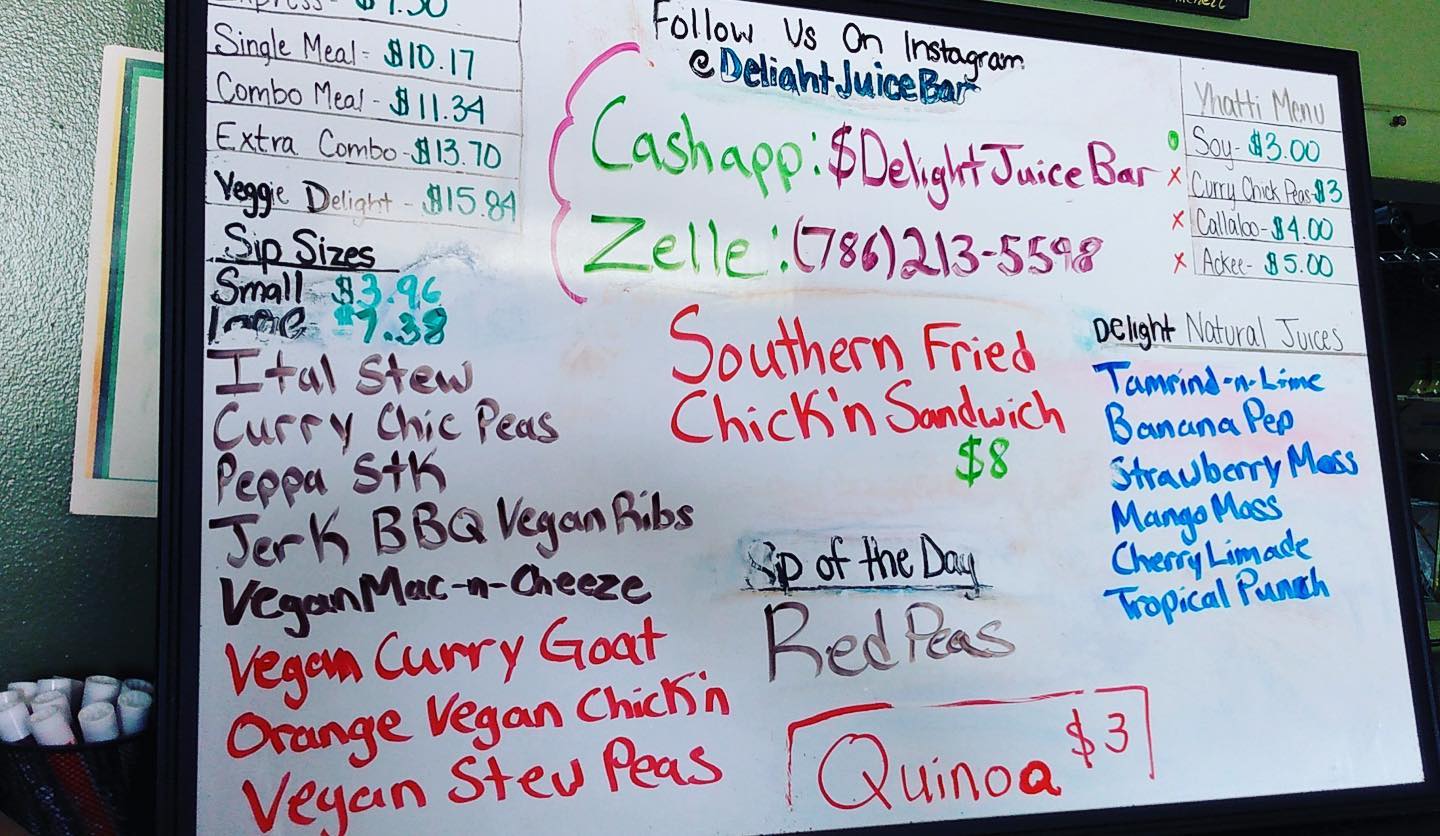 Single Meal - $10.17
Combo Meal - $11.34
Extra Combo - $13.70
Veggie Delight - $15.84
Sip Sizes
Small $3.96
$7.38
Ital Stew
Curry Chic Peas
Peppa Stk
Jerk BBQ Vegan Ribs
Vegan Mac-n-Cheeze
Vegan Curry Goat
Orange Vegan Chick'n
Vegan Stew Peas
Follow Us On Instagram
@DelightJuiceBar
Cashapp: $DelightJuiceBar
Zelle: (786)213-5598
Southern Fried
Chick'n Sandwich
$8
Sip of the Day
Red Peas
Quinoa $3
Yhatti Menu
Soy - $3.00
x Curry Chick Peas - $3
x Callaloo - $4.00
x Ackee - $5.00
Delight Natural Juices
Tamrind-n-Lime
Banana Pep
Strawberry Moss
Mango Moss
Cherry Limade
Tropical Punch